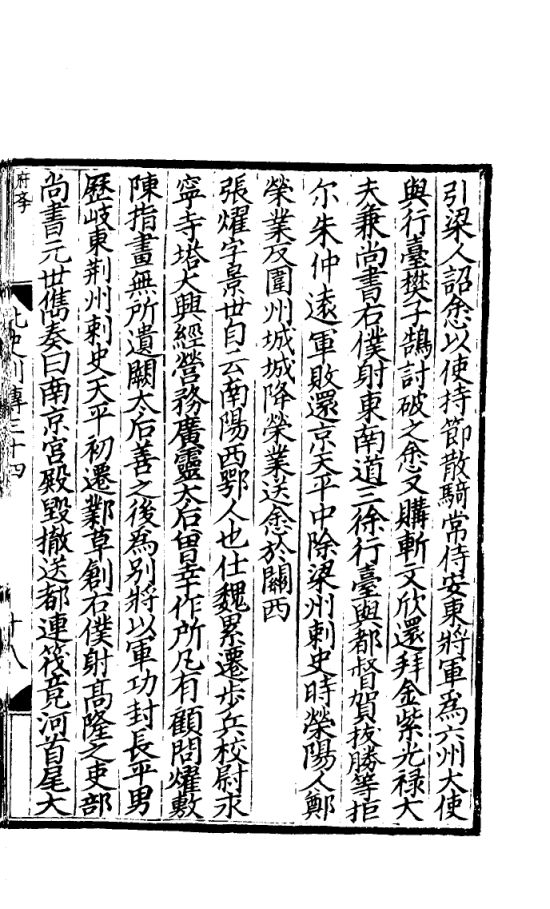 引梁人詔悆以使持節散騎常侍安東將軍爲六州大使
與行臺樊子鵠討破之悆又購斬文欣還拜金紫光禄大
夫兼尚書右僕射東南道三徐行臺與都督賀拔勝等拒
尔朱仲遠軍敗還京天平中除梁州刺史時榮陽人鄭
榮業反圍州城城降榮業送悆於關西
張燿字景世自云南陽西鄂人也仕魏累遷步兵校尉永
寧寺塔大興經營務廣靈太后曽幸作所凡有顧問燿敷
陳指畫無所遺闕太后善之後爲別將以軍功封長平男
歷岐東荆州刺史天平初遷鄴草創右僕射髙隆之吏部
尚書元世儁奏曰南京宫殿毀撤送都連筏竟河首尾大
北史列傳三十四
十八